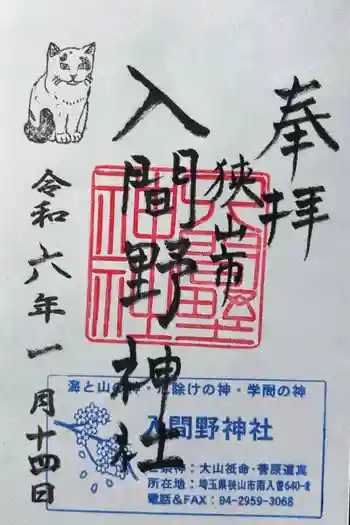 奉拝
狭山市
入間野神社
令和六年一月十四日
入間野神社
海と山の神・厄除けの神・学問の神
入間野神社
祭神：大山祇命・菅原道真
所在地：埼玉県狭山市南入曽640-1
電話&FAX：04-2959-3068